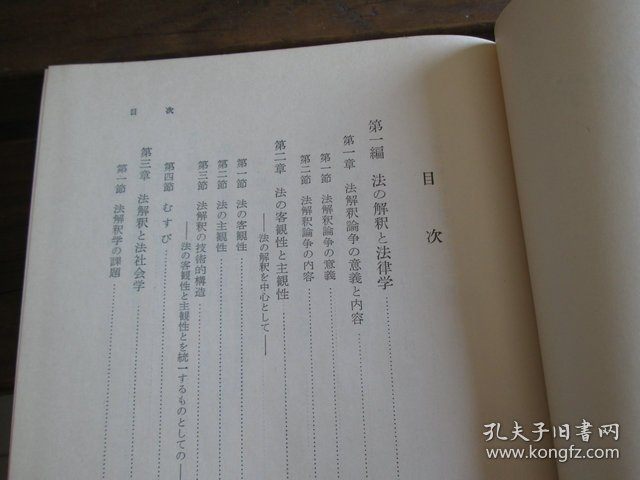 目次
第一編 法の解釈と法律学
第一章 法解釈論争の意義と内容
第一節 法解釈論争の意義
第二節 法解釈論争の内容
第二章 法の客観性と主観性
――法の解釈を中心として――
第一節 法の客観性
第二節 法の主観性
第三節 法解釈の技術的構造
――法の客観性と主観性とを統一するものとしての―
第四節 むすび
第三章 法解釈と法社会学
第一節 法解釈学の課題
目次
孔夫子旧书网
www.kongfz.com